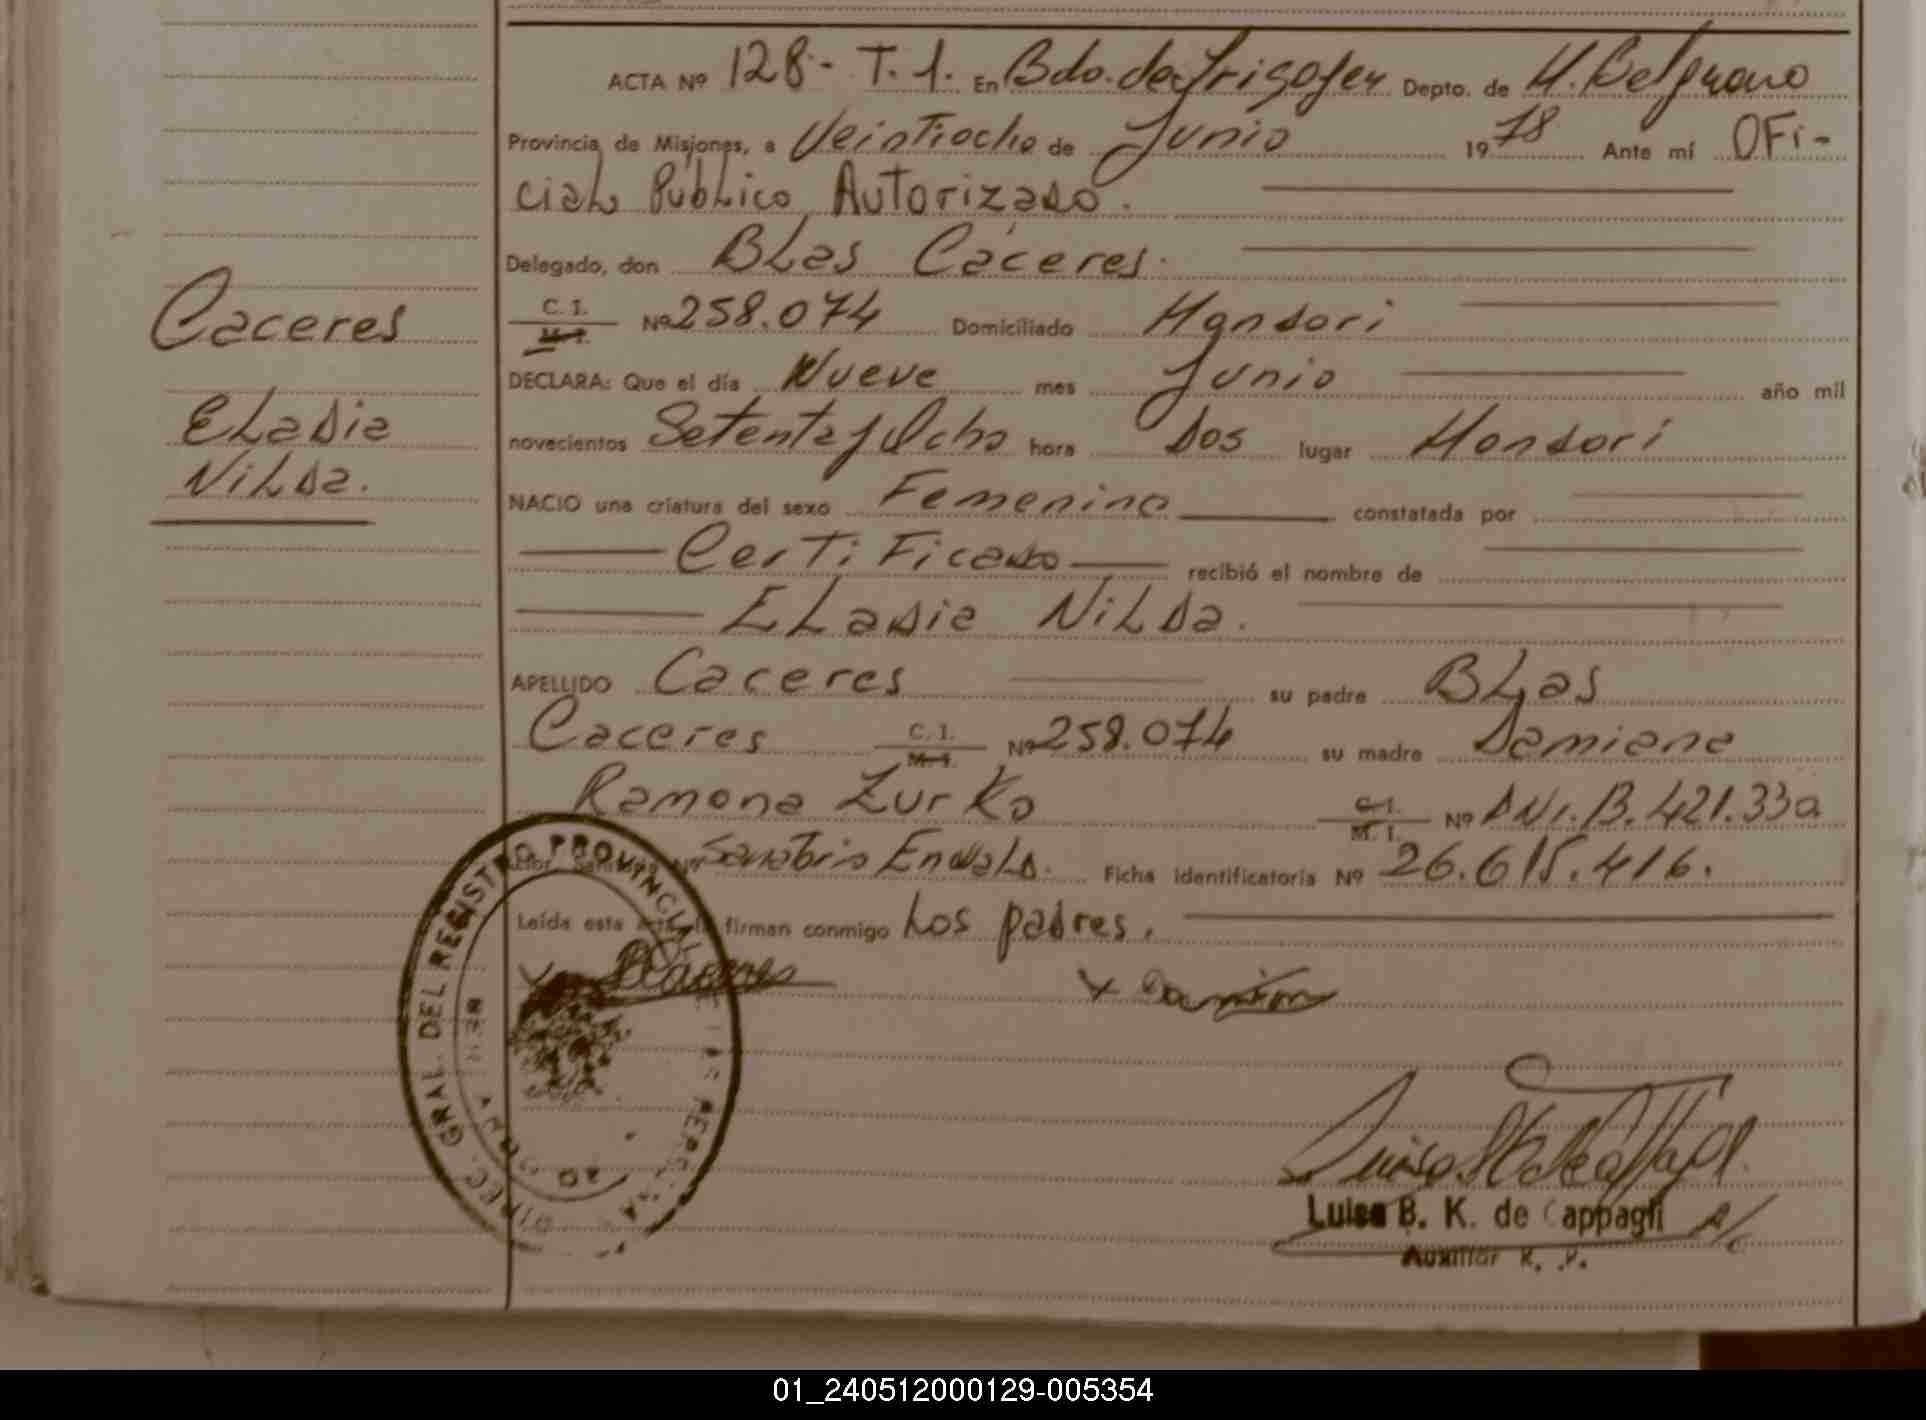 ACTA Nº 128- T. 1. En Bdo. de Irigoyen Depto. de M. Belgrano
Provincia de Misiones, a Veintiocho de Junio 1978 Ante mí OFi-
ciaL PúbLico AutorizaDo.
Delegado, don BLas Cáceres.
C. I. M. I. Nº 258.074 Domiciliado Mondori
DECLARA: Que el día Nueve mes Junio año mil
novecientos Setenta y Ocho hora Dos lugar Mondori
NACIO una criatura del sexo Femenino constatada por
CertiFicado recibió el nombre de
ELaDia NiLDa.
APELLIDO Caceres su padre BLas
Caceres C. I. M. I. Nº 258.074 su madre Damiana
Ramona Zurka C. I. M. I. Nº DNi. 13.421.330
Nº Sanabria Ficha Identificatoria Nº 26.615.416.
Leída esta firman conmigo Los padres.
Caceres
ELaDia
NiLDa.
DIREC. GRAL. DEL REGISTRO PROVINCIAL DE LAS PERSONAS
Luisa B. K. de Cappagli
Auxiliar R. P.
01_240512000129-005354